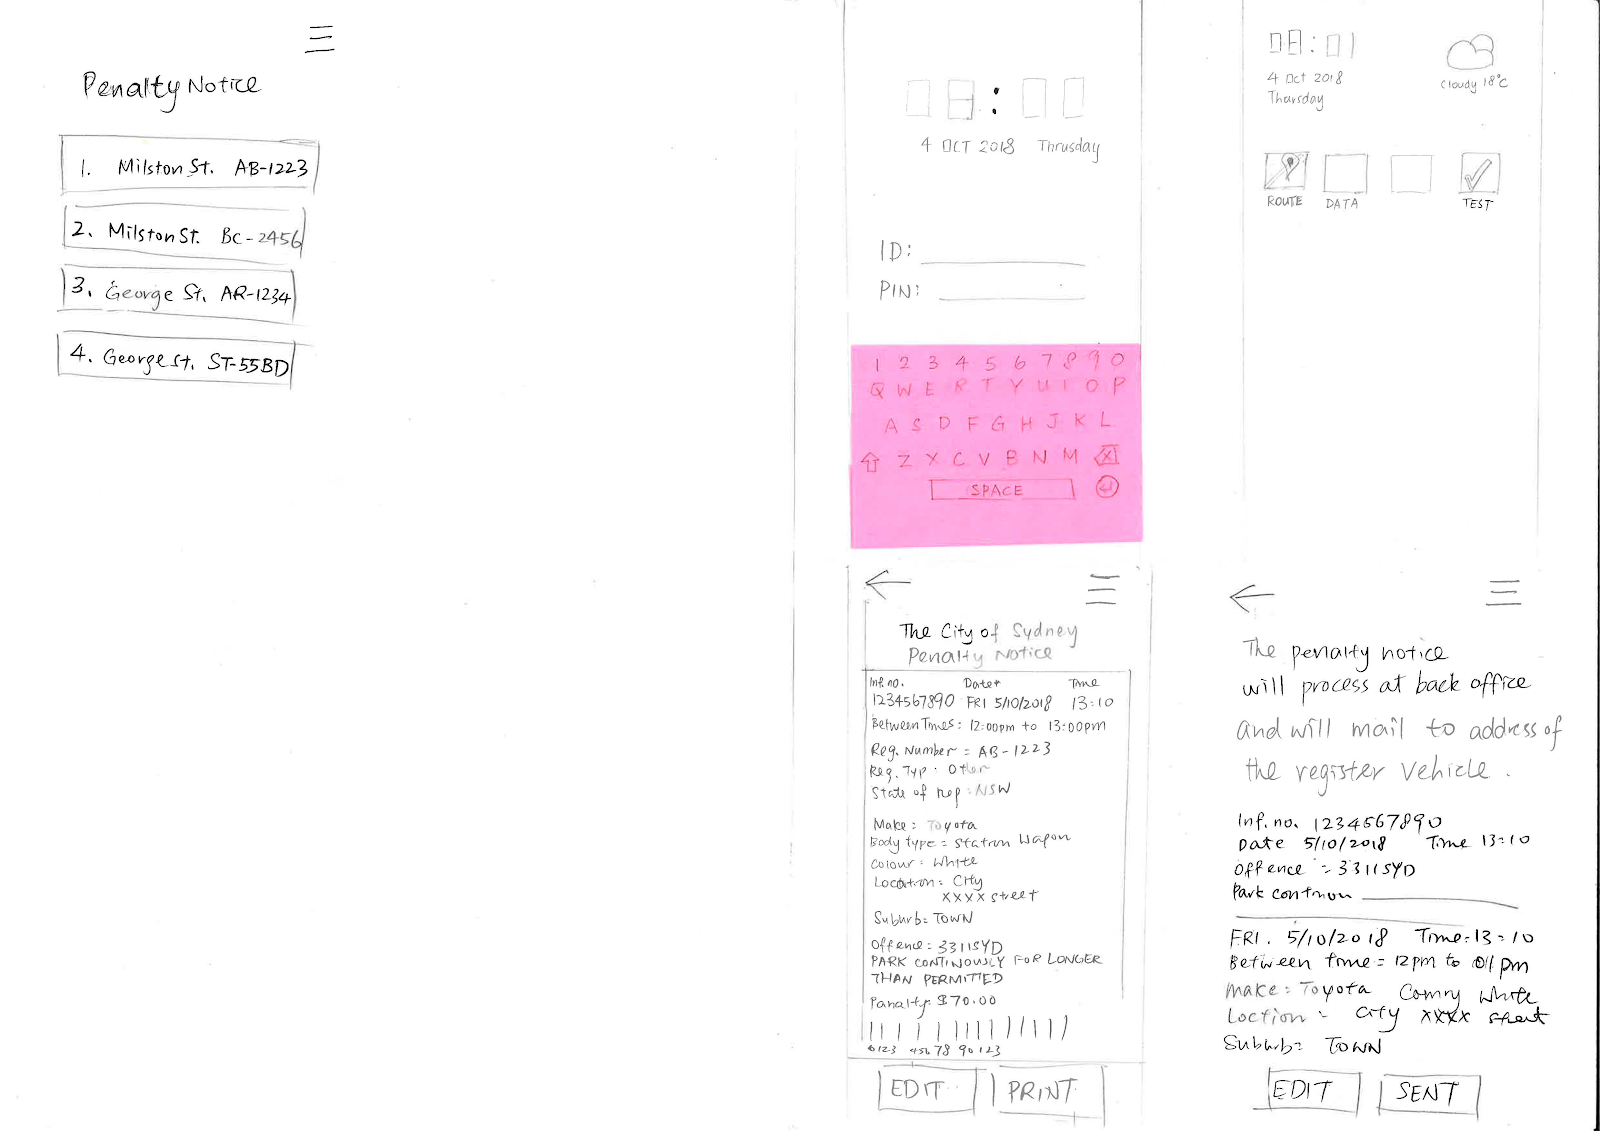 Penalty Notice
1. Milston St. AB-1223
2. Milston St. BC-2456
3. George St. AR-1234
4. George St. ST-55BD
08:00
4 OCT 2018 Thrusday
ID:
PIN:
1 2 3 4 5 6 7 8 9 0
Q W E R T Y U I O P
A S D F G H J K L
Z X C V B N M X
SPACE
08:01
4 Oct 2018
Thursday
Cloudy 18°C
ROUTE DATA TEST
The City of Sydney
Penalty Notice
Inf. no. Date+ Time
1234567890 FRI 5/10/2018 13:10
Between Times: 12:00pm to 13:00pm
Reg. Number = AB-1223
Reg. Typ: Other
State of rep: NSW
Make: Toyota
Body type = Station Wagon
Colour: White
Location: City
XXXX street
Suburb: TOWN
Offence: 3311SYD
PARK CONTINOUSLY FOR LONGER
THAN PERMITTED
Panalty $70.00
0123 45678 90123
EDIT PRINT
The penalty notice
will process at back office
and will mail to address of
the register vehicle.
Inf. no. 1234567890
Date 5/10/2018 Time 13:10
Offence : 3311SYD
Park contnuou
FRI. 5/10/2018 Time: 13:10
Between time = 12pm to 01pm
Make: Toyota Comry White
Loction: City XXXX
Suburb: TOWN
EDIT SENT